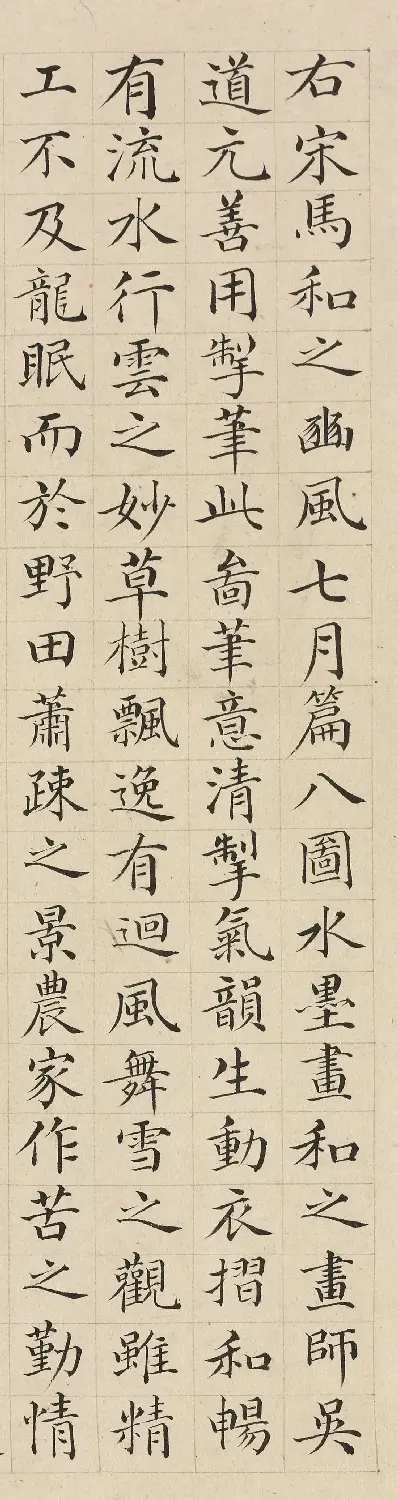 右宋馬和之豳風七月篇八圖水墨畫和之畫師吳
道元善用掣筆此啚筆意清掣氣韻生動衣摺和暢
有流水行雲之妙草樹飄逸有迴風舞雪之觀雖精
工不及龍眠而於野田蕭踈之景農家作苦之勤情